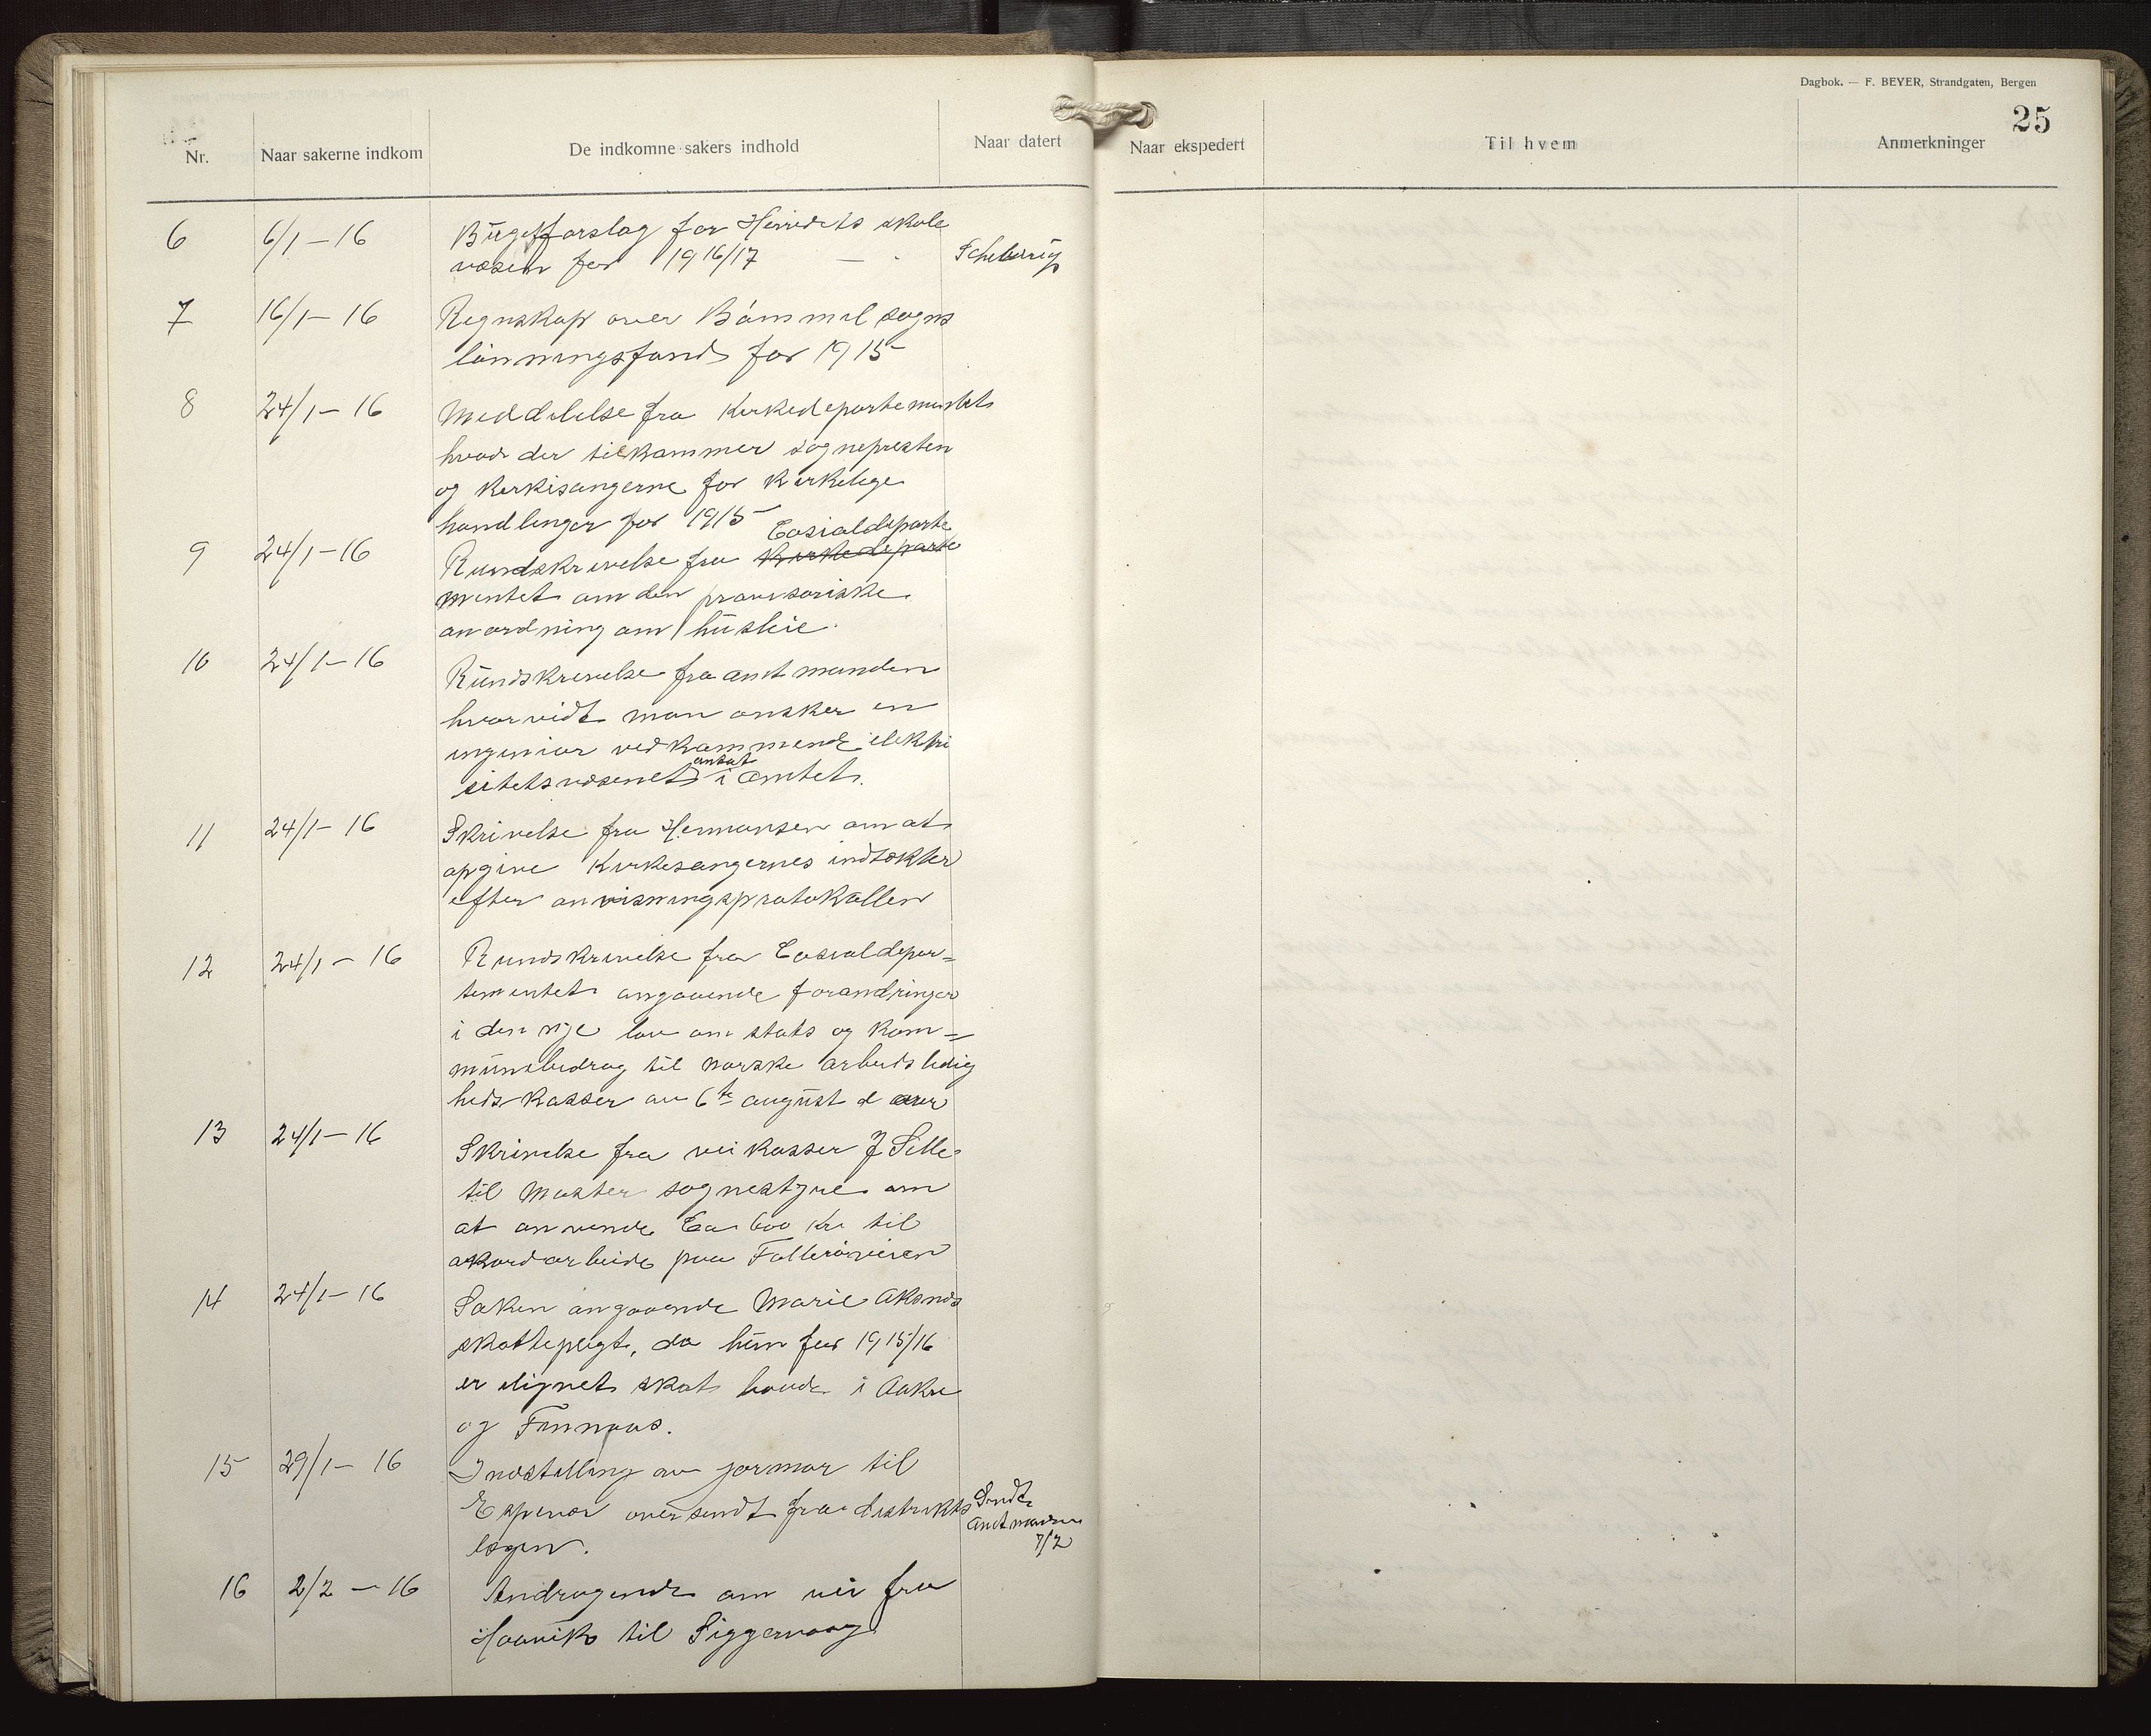 Dagbok. — F. BEYER, Strandgaten, Bergen
25
Nr. Naar sakerne indkom De indkomne sakers indhold Naar datert Naar ekspedert Til hvem Anmerkninger
6 6/1 – 16 Büdgetforslag for Herredets skole
væsen for 1916/17 —
7 16/1 – 16 Regnskap over Bömmel sogns
lönningsfond for 1915
8 24/1 – 16 Meddelelse fra Kirkedepartementet
hvad der tilkommer sognepresten
og Kirkesangerne for Kirkelige
handlinger for 1915
9 24/1 – 16 Rundskrivelse fra Kirkedeparte Cosialdeparte
mentet om den provisoriske
anordning om huusleie.
10 24/1 – 16 Rundskrivelse fra amtmanden
hvorvidt man önsker en
ingeniör vedkommende elektri
citetsvæsenet ansat i amtet.
11 24/1 – 16 Skrivelse fra Hermansen om at
opgive Kirkesangernes indtækter
efter anvisningsprotokollen
12 24/1 – 16 Rundskrivelse fra Cosialdepar=
tementet angaaende forandringer
i den nye lov om stats og kom=
münebidrag til norske arbeidsledig
hedskasser av 6te august d aar
13 24/1 – 16 Skrivelse fra veikasser J Sille
til Moster sognestyre om
at anvende Ca 600 Kr til
akordarbeide paa Folleröveien
14 24/1 – 16 Saken angaaende Marie
skattepligt, da hun for 1915/16
er lignet skat baade i Aakre
og Finnaas.
15 29/1 – 16 Indstilling av jormor til
Espevær oversendt fra distrikts
lægen.
Sendt
Amtmanden
7/2
16 2/2 – 16 Andragende om vei fra
Haavik til Siggervaag